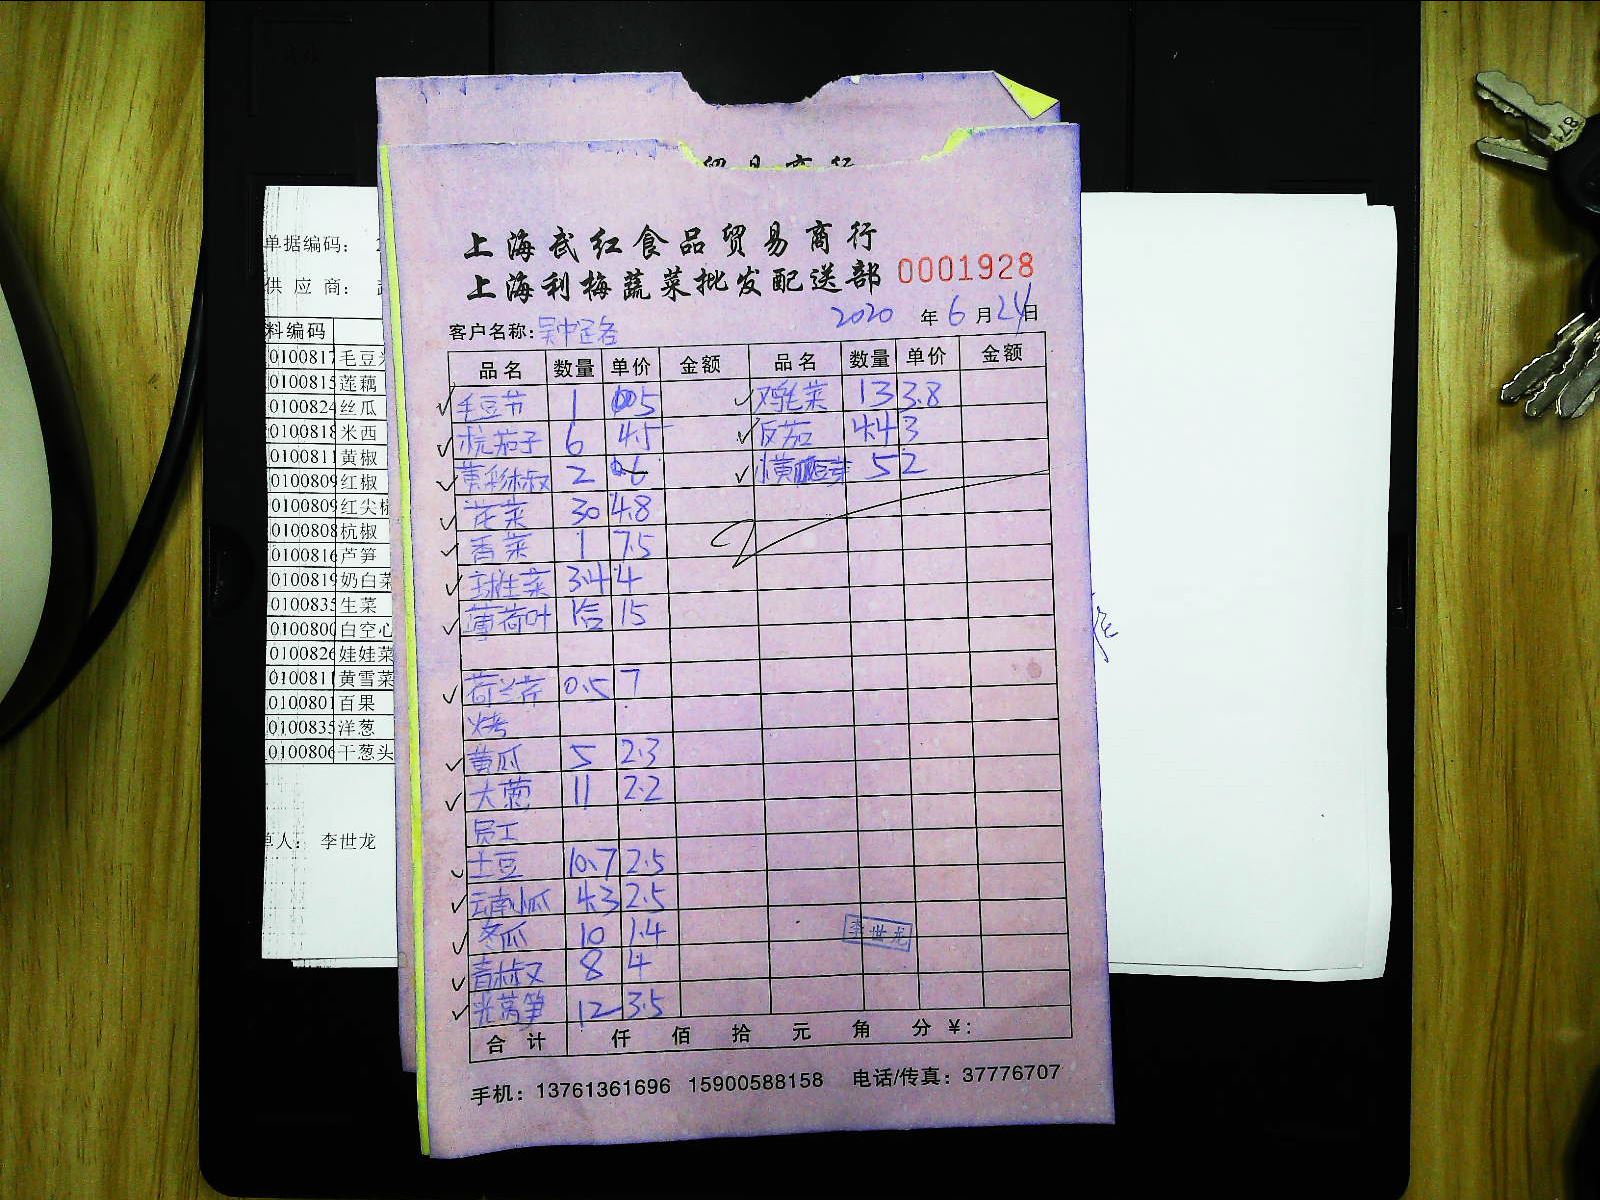 单据编码：
供 应 商：
料编码
0100817 毛豆米
0100815 莲藕
0100824 丝瓜
0100818 米西
0100811 黄椒
0100809 红椒
0100809 红尖椒
0100808 杭椒
0100816 芦笋
0100819 奶白菜
0100835 生菜
0100800 白空心
0100826 娃娃菜
0100811 黄雪菜
0100801 百果
0100835 洋葱
0100806 干葱头
单人： 李世龙
贸易商行
上海武红食品贸易商行
上海利梅蔬菜批发配送部 0001928
2020 年 6 月 24 日
客户名称：吴中路
品名 数量 单价 金额 品名 数量 单价 金额
毛豆节 1 5 鸡毛菜 13 3.8
杭茄子 6 4.5 反茄 4.4 3
黄彩椒 2 6 小黄豆芽 5 2
花菜 30 4.8
香菜 1 7.5
球生菜 3.4 4
薄荷叶 1合 15
荷兰芹 0.5 7
烤
黄瓜 5 2.3
大葱 11 2.2
员工
土豆 10.7 2.5
云南小瓜 4.3 2.5
冬瓜 10 1.4
青椒 8 4
光莴笋 12 3.5
李世龙
合 计 仟 佰 拾 元 角 分 ¥：
手机：13761361696 15900588158 电话/传真：37776707